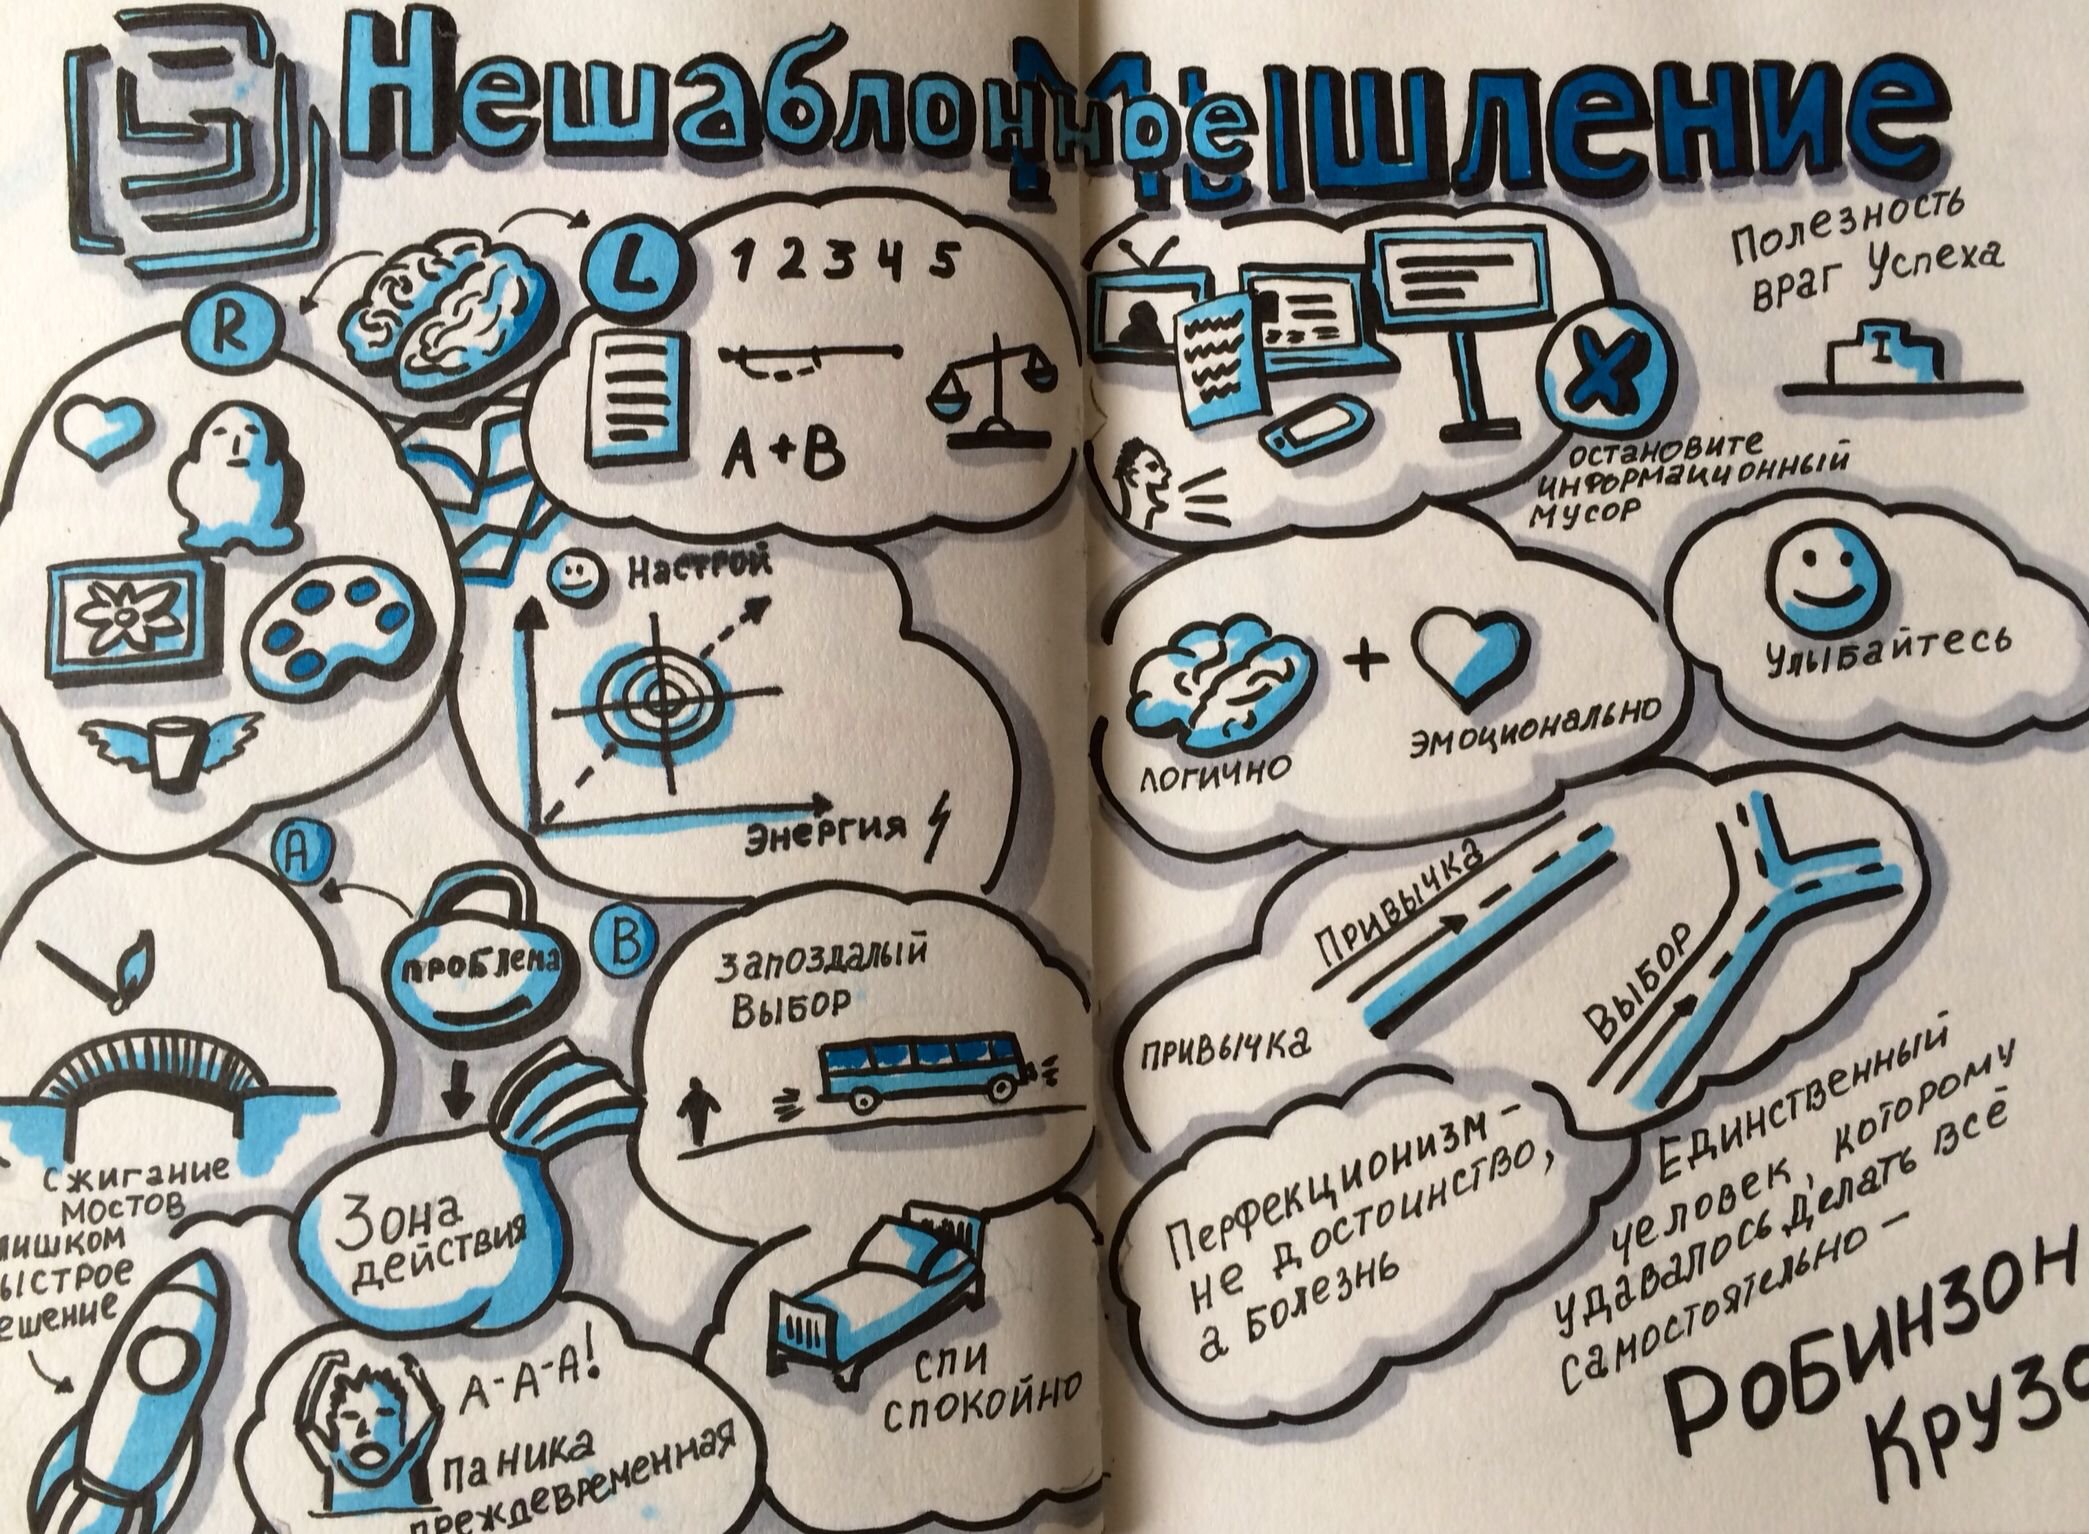 Нешаблонное Мышление
R
L
1 2 3 4 5
A + B
X
Полезность
враг Успеха
I
остановите
информационный
мусор
Настрой
Энергия
+
логично
эмоционально
Улыбайтесь
A
проблема
B
Запоздалый
Выбор
Привычка
привычка
Выбор
Сжигание
мостов
Зона
действия
А-А-А!
Паника
преждевременная
спи
спокойно
Перфекционизм –
не достоинство,
а болезнь
Единственный
человек, которому
удавалось делать всё
самостоятельно –
Робинзон
Крузо